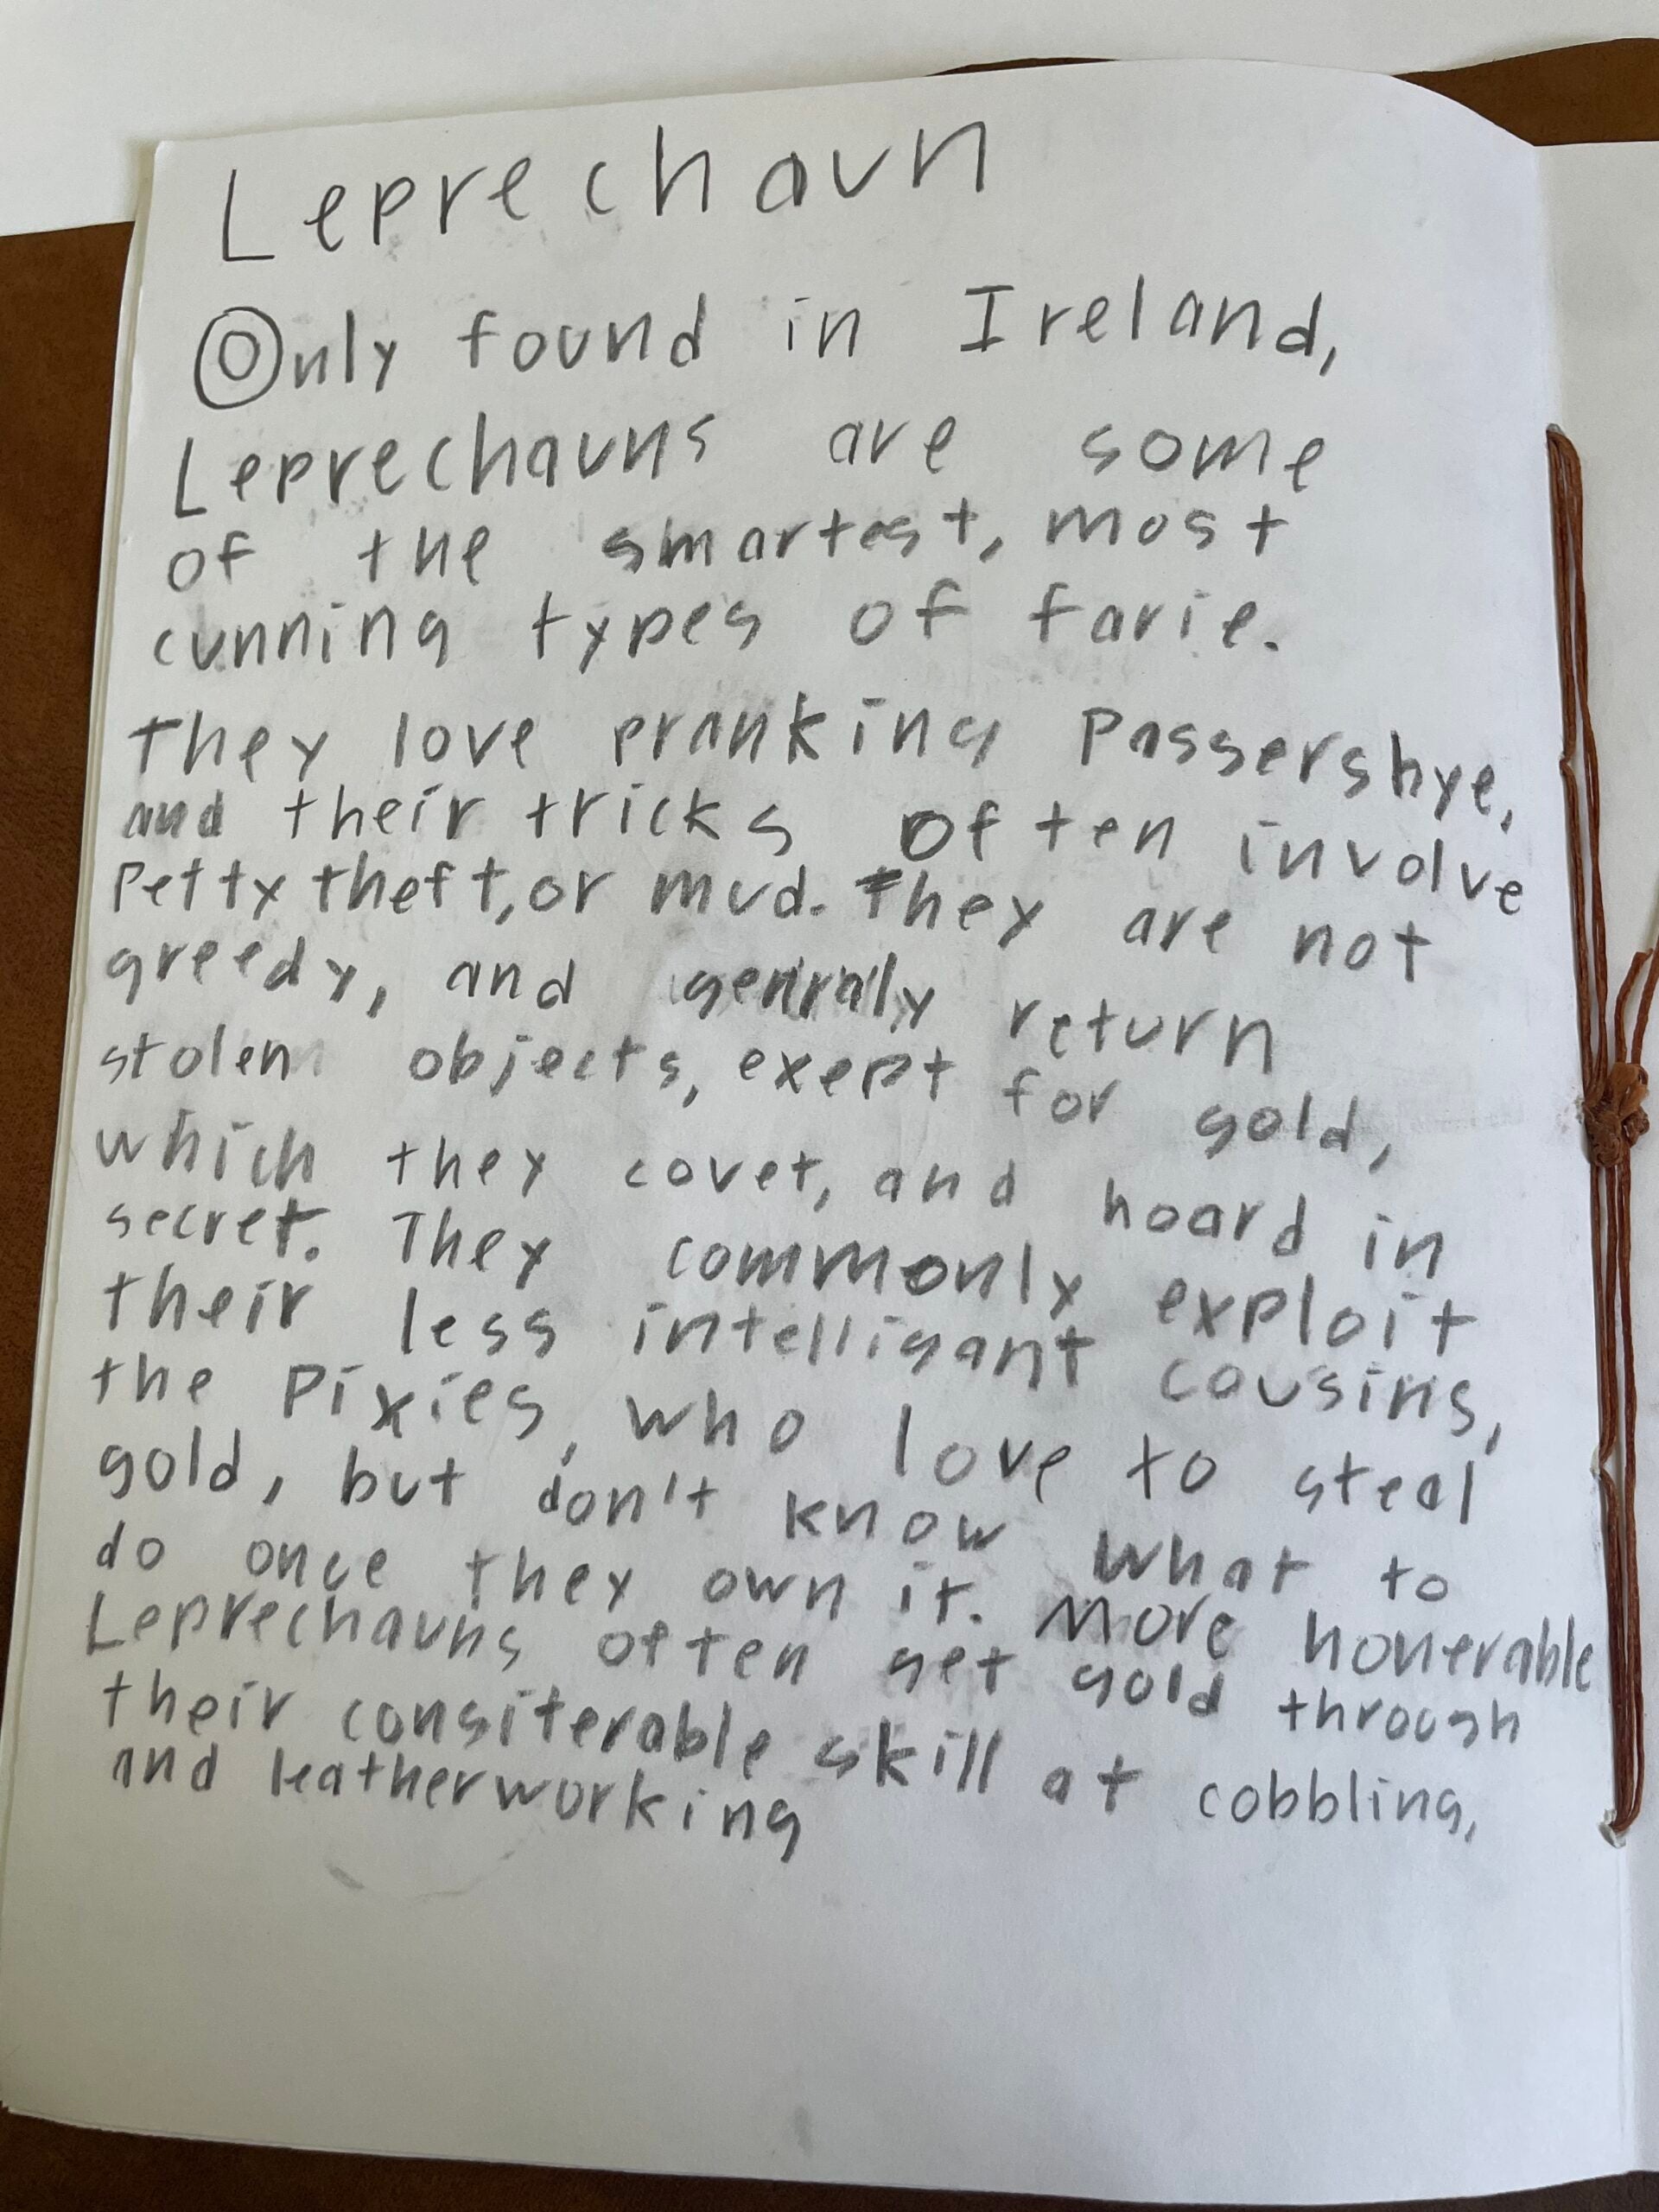 Leprechaun
Only found in Ireland,
Leprechauns are some
of the smartest, most
cunning types of farie.
They love pranking Passersbye,
and their tricks often involve
Petty theft, or mud. They are not
greedy, and genraly return
stolen objects, exept for gold,
which they covet, and hoard in
secret. They commonly exploit
their less intelligant cousins,
the Pixies, who love to steal
gold, but don't know what to
do once they own it. More honerable
Leprechauns often get gold through
their consiterable skill at cobbling,
and leatherworking